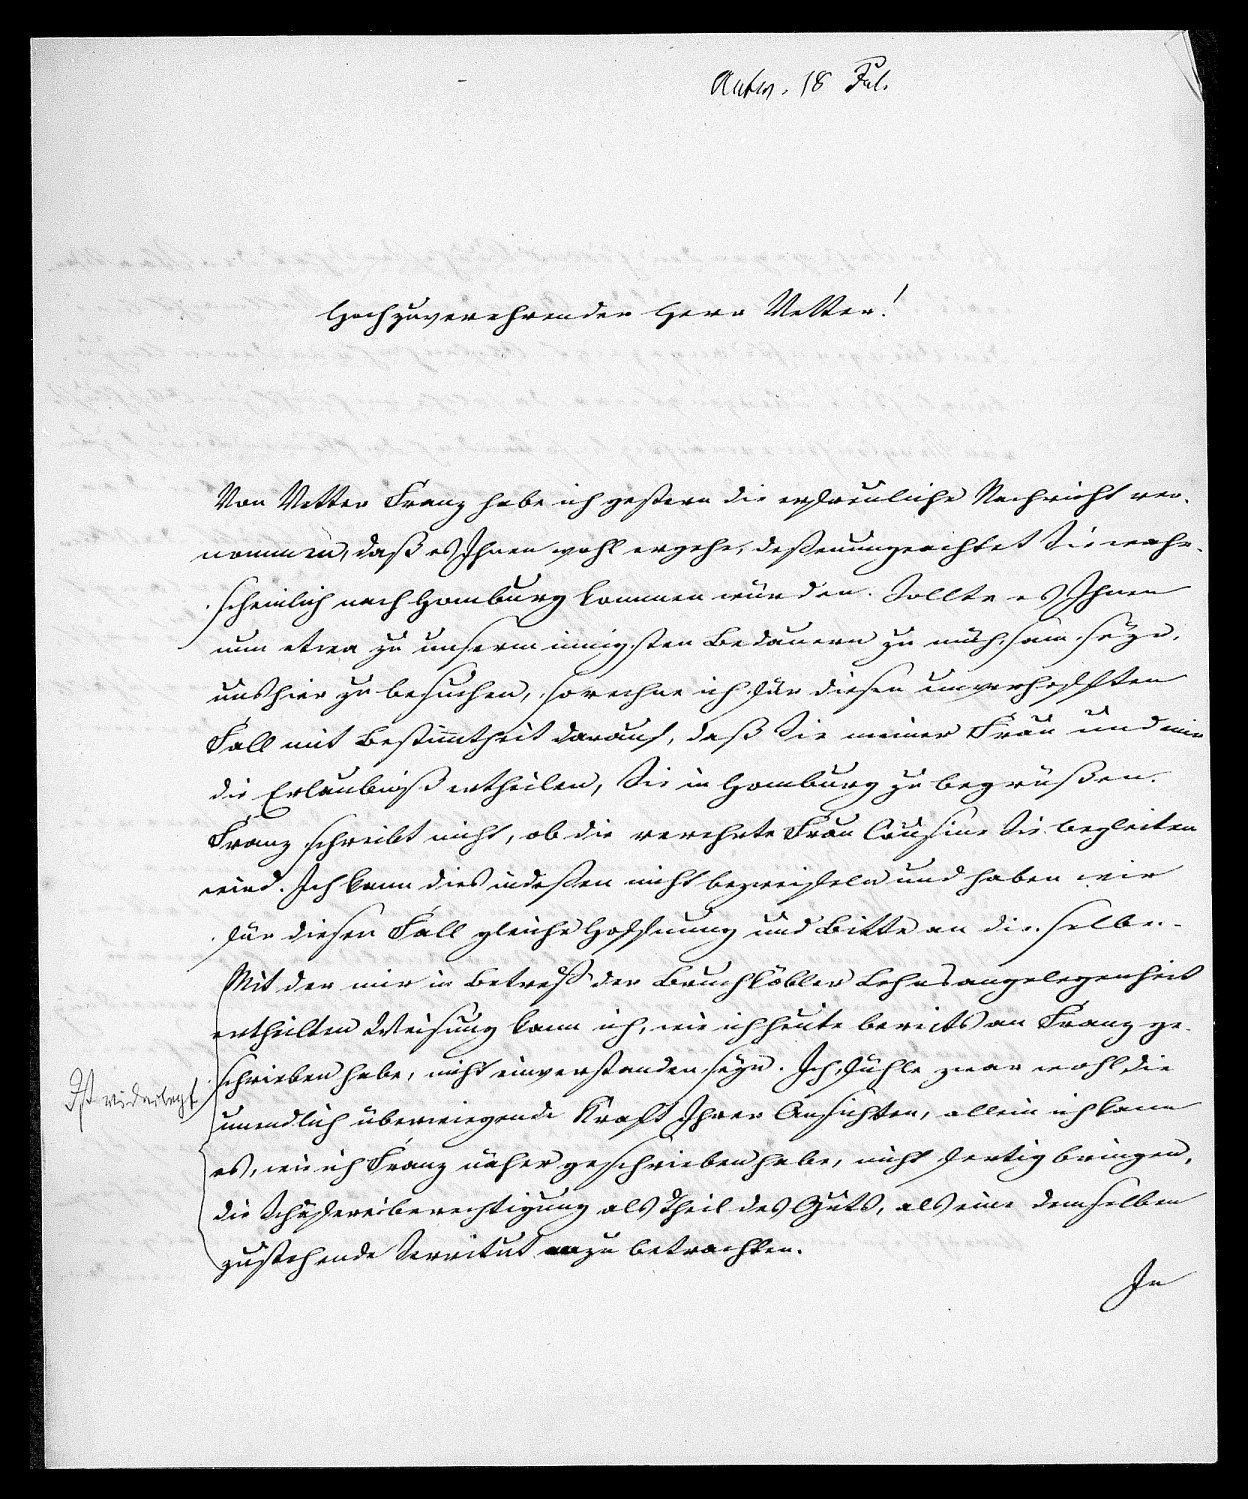 Antw. 18 Jul.
Hochzuverehrender Herr Vetter!
Von Vetter Franz habe ich gestern die erfreuliche Nachricht ver-
nommen, daß es Ihnen wohl ergehe, deßenungeachtet Sie wahr-
scheinlich nach Homburg kommen würden. Sollte es Ihnen
nun etwa zu unserm innigsten Bedauern zu mühsam seyn,
uns hier zu besuchen, so rechne ich für diesen unverhofften
Fall mit Bestimtheit darauf, daß Sie meiner Frau und mir
die Erlaubniß ertheilen, Sie in Homburg zu begrüßen.
Franz schreibt nicht, ob die verehrte Frau Cousine Sie begleiten
wird. Ich kann dies indeßen nicht bezweifeln und haben wir
für diesen Fall gleiche Hoffnung und Bitte an dieselbe.-
Mit der mir in Betreff der Bruchköbler Lehnsangelegenheit
ertheilten Weisung kann ich, wie ich heute bereits an Franz ge-
schrieben habe, nicht einverstanden seyn. Ich fühle zwar wohl die
Ist widerlegt
unendlich überwiegende Kraft Ihrer Ansichten, allein ich kann
es, wie ich Franz näher geschrieben habe, nicht fertig bringen,
die Schäfereiberechtigung als Theil des Guts, als eine demselben
zustehende Servitut zu betrachten.
In